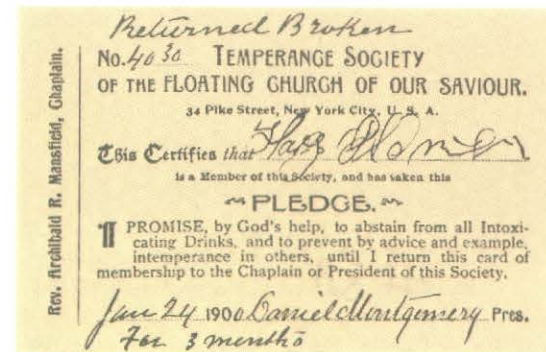 Returned Broken
No. 4030 TEMPERANCE SOCIETY
OF THE FLOATING CHURCH OF OUR SAVIOUR.
34 Pike Street, New York City, U. S. A.
This Certifies that
is a Member of this Society, and has taken this
PLEDGE.
I PROMISE, by God's help, to abstain from all Intoxi-
cating Drinks, and to prevent by advice and example,
intemperance in others, until I return this card of
membership to the Chaplain or President of this Society.
Jan 24 1900 Daniel Montgomery Pres.
For 3 months
Rev. Archibald R. Mansfield, Chaplain.